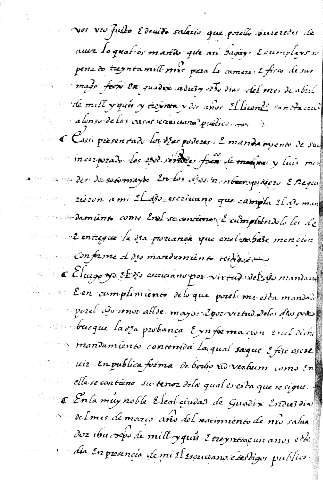 vro Justo E devido salario que por ello ovieredes de
aver lo qual vos mando que ansi hagays E cumplays so
pena de treynta mill mrs para la camara E fisco de su
mag fecho En guadix a dias del mes de abril
de mill y quis y treynta y dos años El licendo
alonso de las casas escrivano publico
E asi presentado los dhos poderes E mandamiento de suso
yncorporado los dhos franco de molina y luis
des de sotomayor En los dhos nonbres pidieron E Requi
rieron a mi El dho escrivano que cumpla El dho man
damiento como En el se contiene E cumpliendolo les de
E entregue la dha provança que en el se haze mencion
conforme al dho mandamiento
E luego yo El dho escrivano por virtud del dho mandamy
E en cumplimiento de lo que por el me esta mandado
por el dho señor allde mayor E por virtud de los dhos pode
busque la dha probança E ynformacion En el dho
mandamiento contenida la qual saque E fize escre
vir En publica forma de berbo ad verbum como En
ella se contiene su tenor de la qual es esta que se sigue
En la muy noble E leal ciudad de Guadix En diez dias
del mes de março año del nascimiento de nro salva
dor ihu xpo de mill y quis E treynta e un anos este
dia En presencia de mi El escrivano E testigos publico